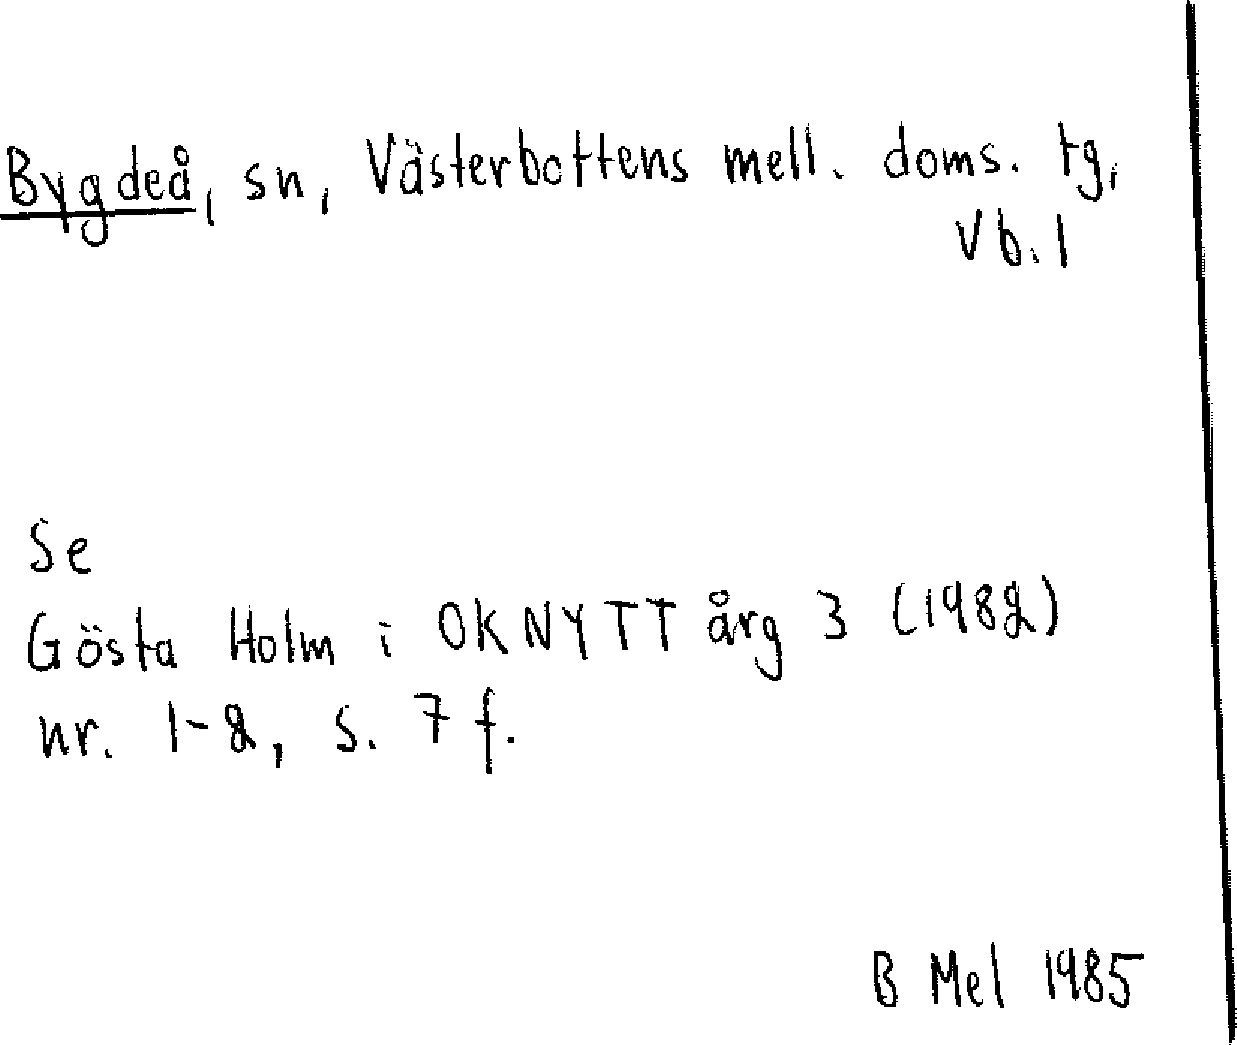 Bygdeå, sn, Västerbottens mell. doms. tg,
Vb. l
Se
Gösta Holm i OKNYTT årg 3 (1982)
nr. 1-2, s. 7 f.
B Mel 1985